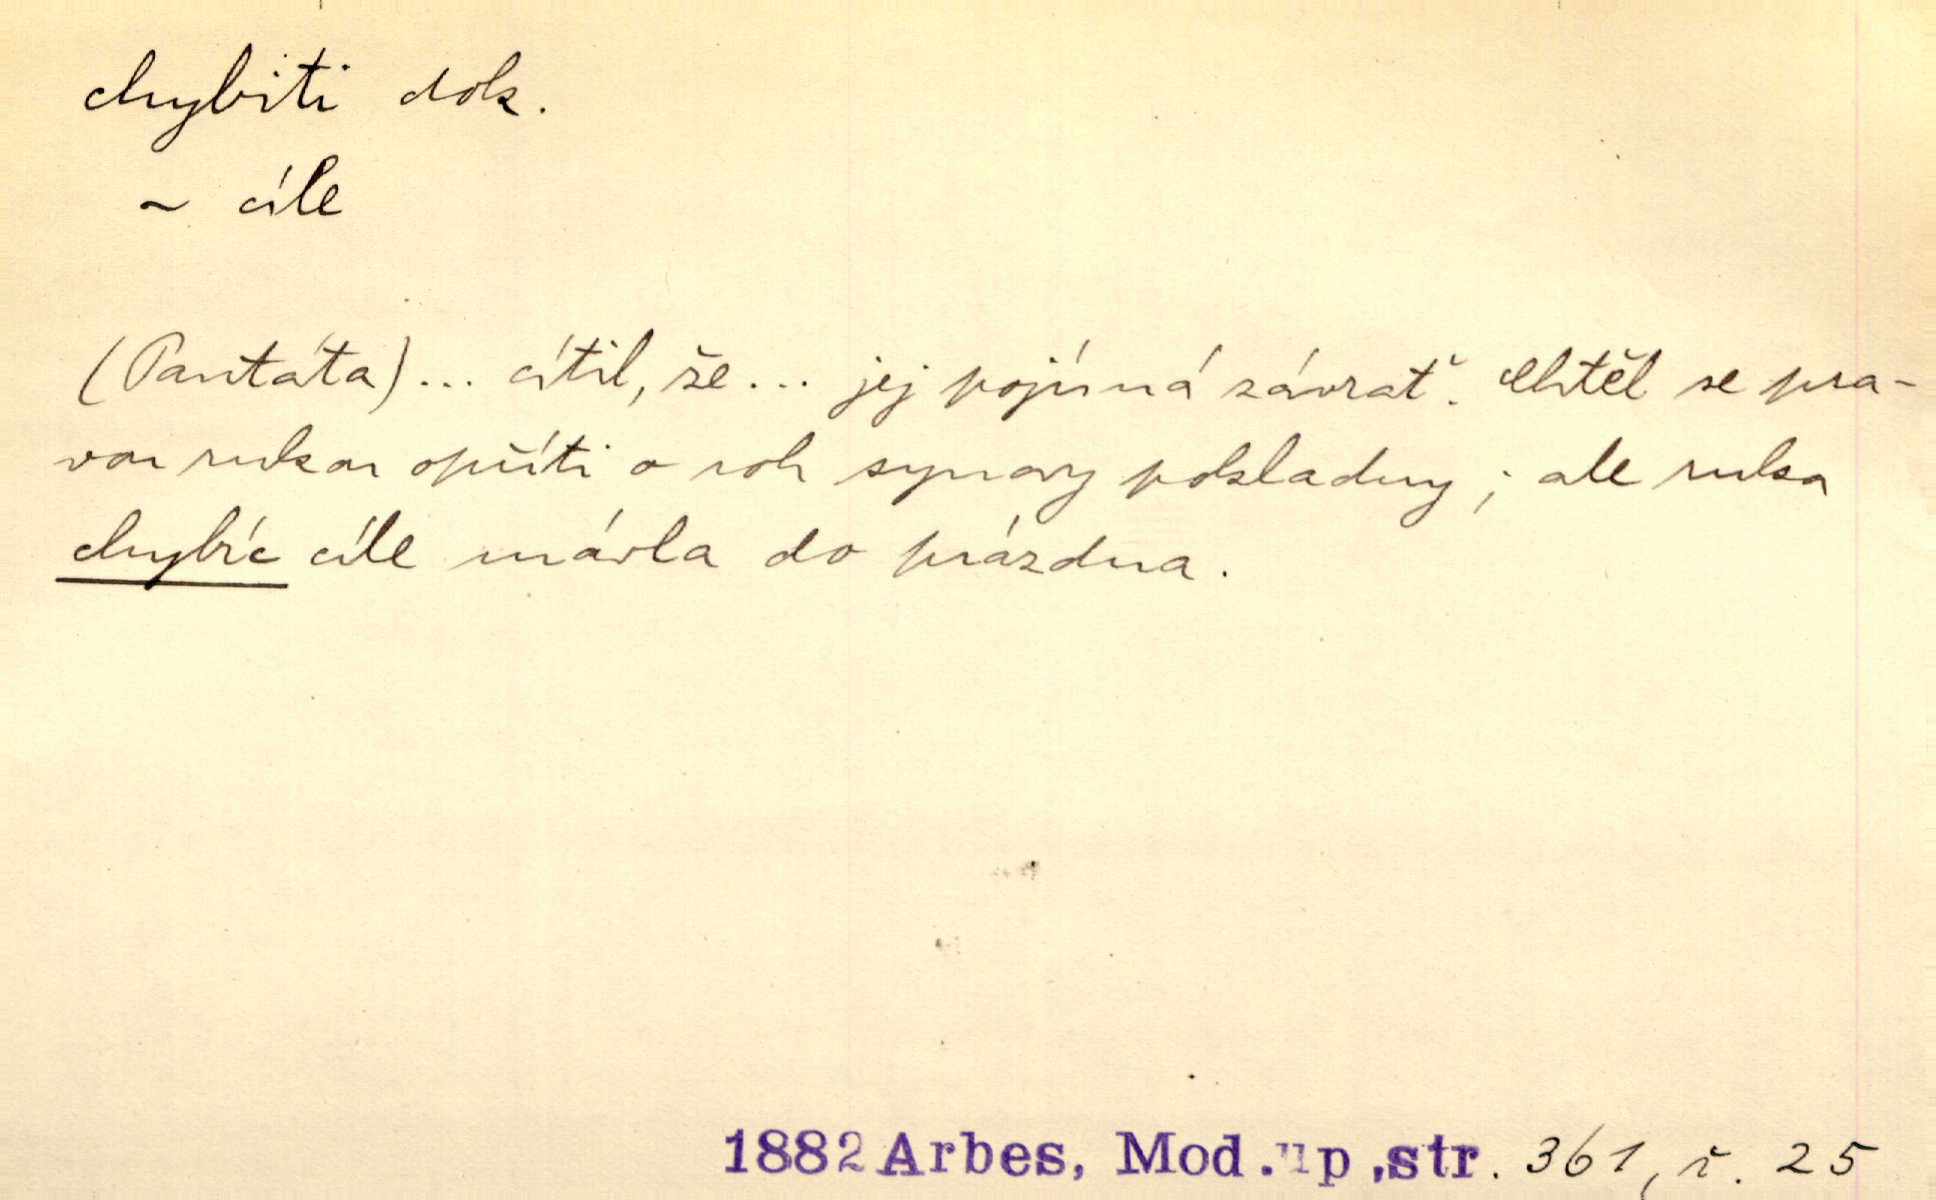 chybiti dok.
~ cíle
(Pantáta)... cítil, že... jej pojímá závrať. Chtěl se pra-
vou rukou opříti o roh synovy pokladny; ale ruka
chybíc cíle mávla do prázdna.
1882 Arbes, Mod.up,str. 361, ř. 25